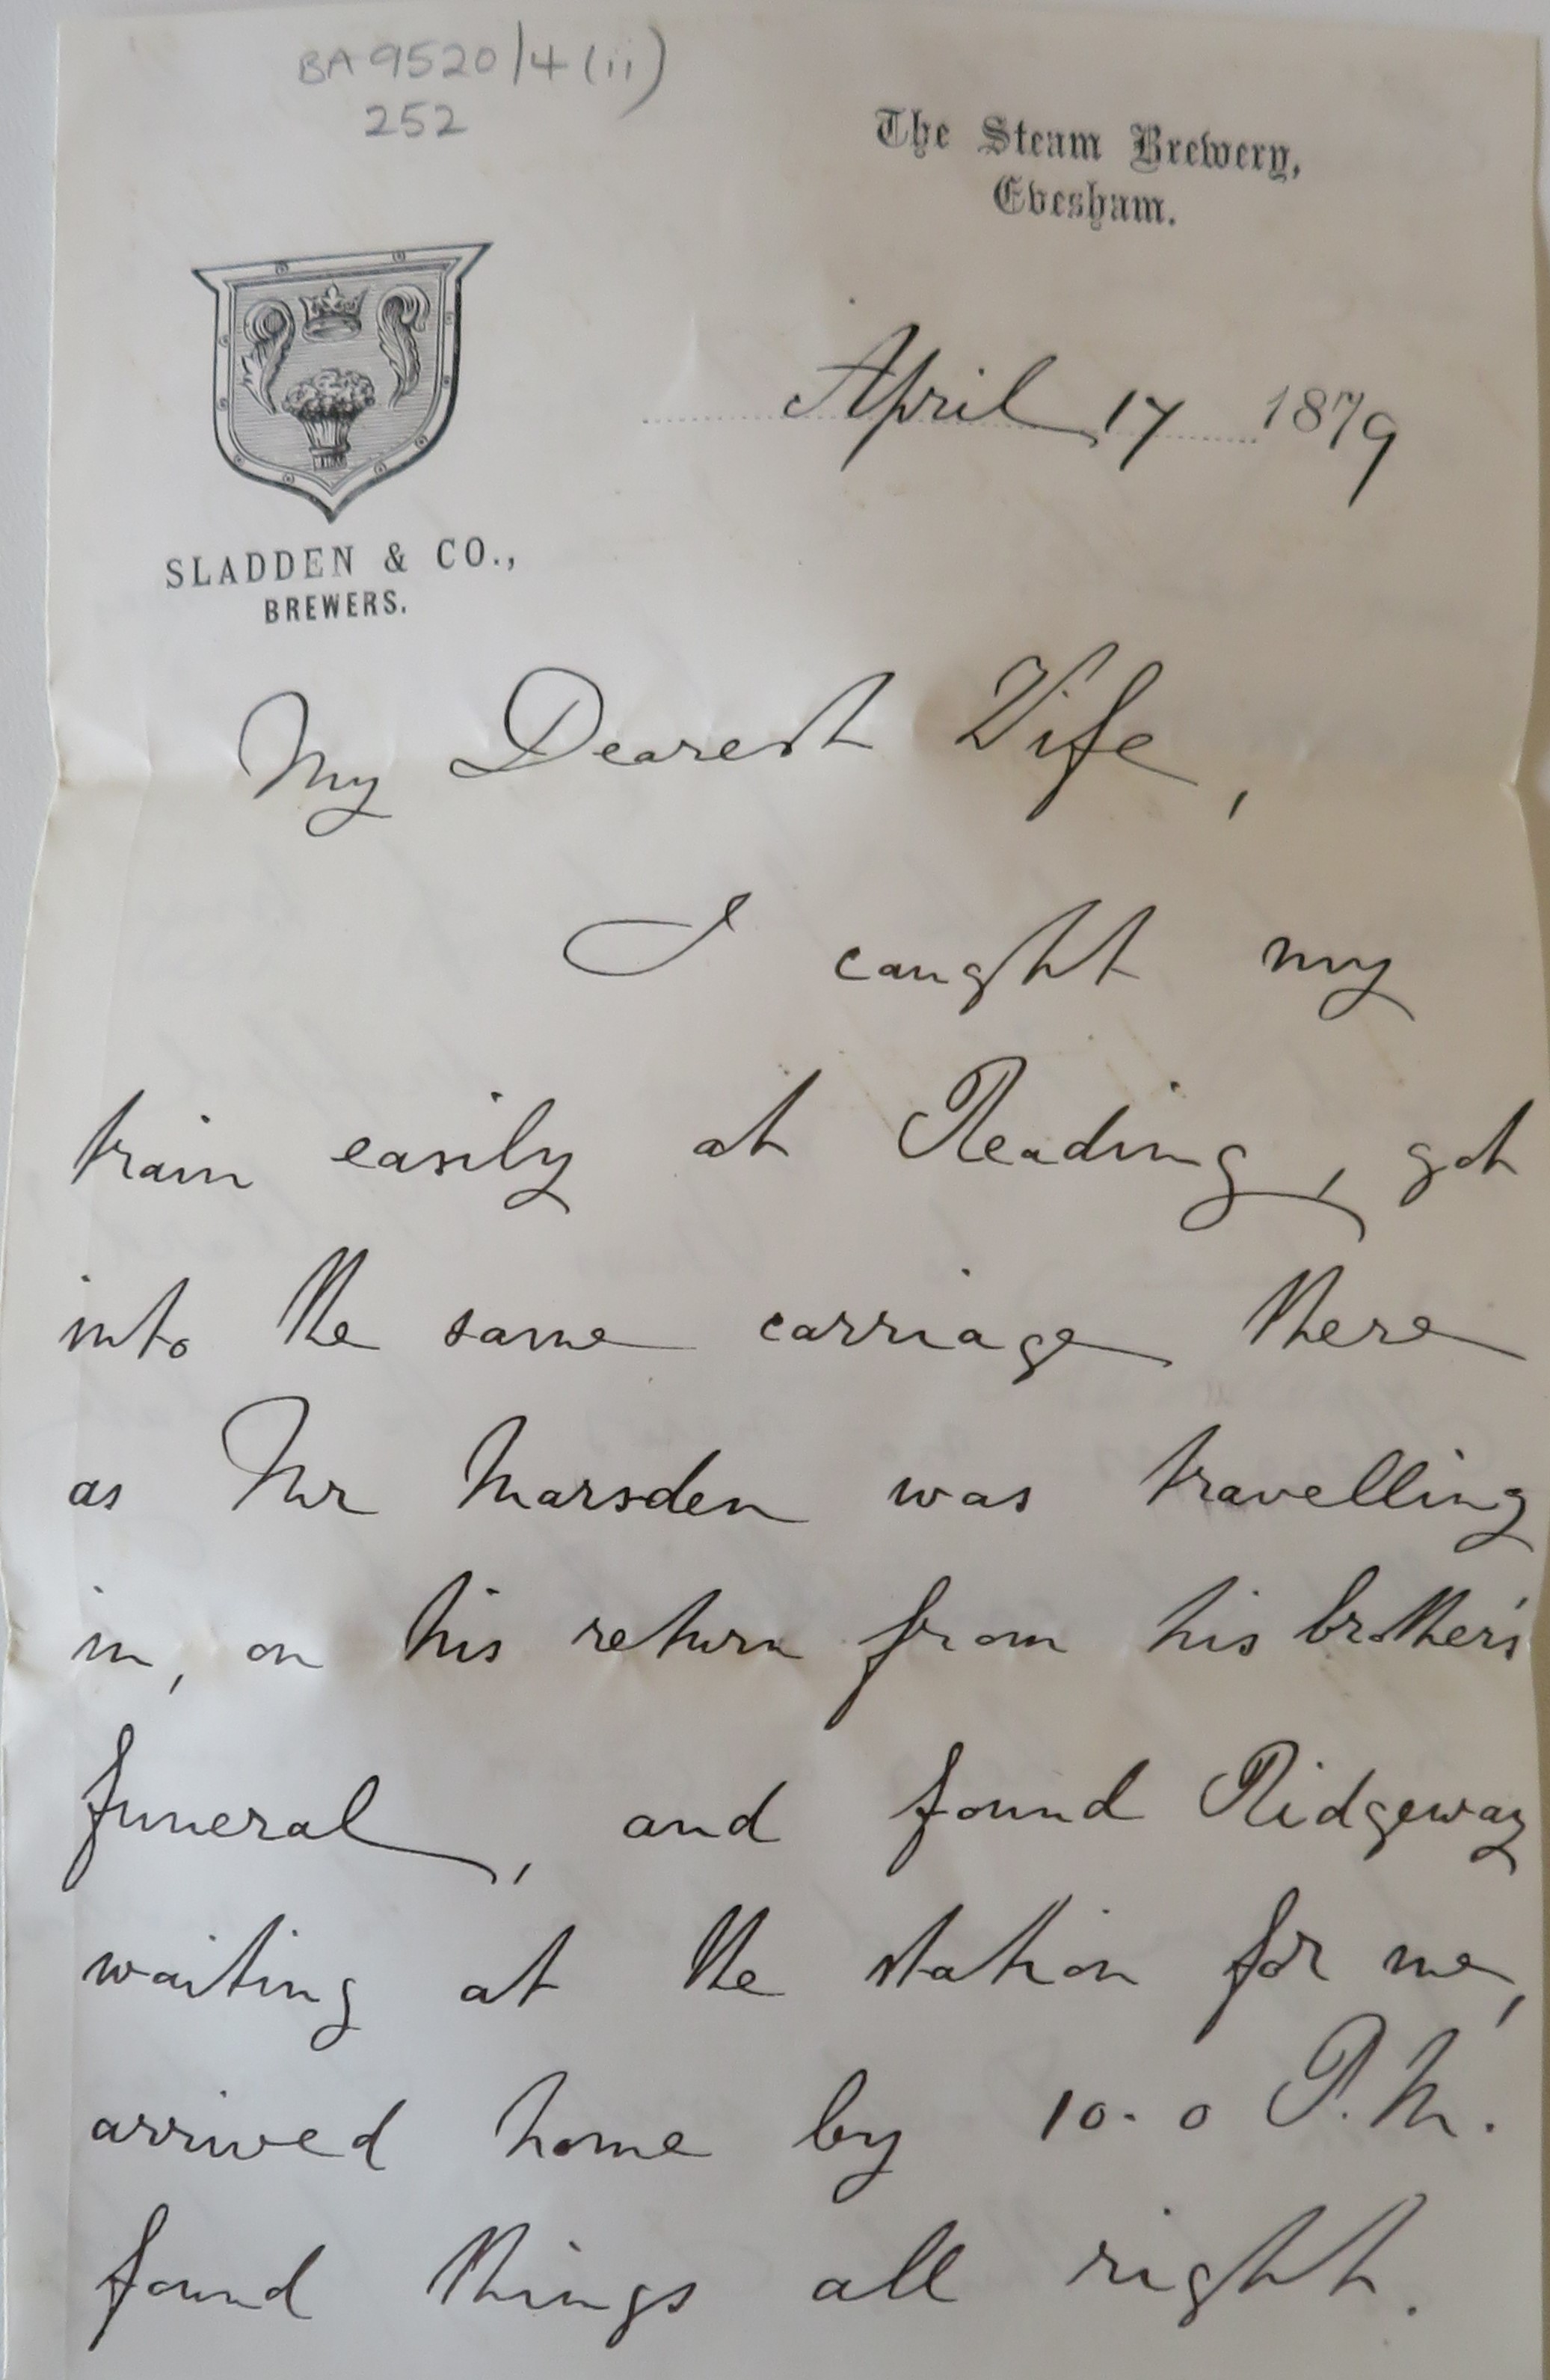 BA 9520/4(ii)
252
The Steam Brewery,
Evesham.
April 17 1879
SLADDEN & CO.,
BREWERS.
My Dearest Wife,
I caught my
train easily at Reading, got
into the same carriage there
as Mr Marsden was travelling
in, on his return from his brother's
funeral, and found Ridgeway
waiting at the station for me,
arrived home by 10.0 P.M.
found things all right.